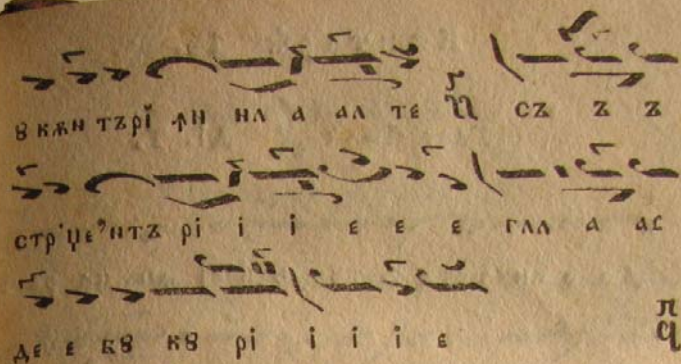 ꙋ кѫн търі ꙟн нл а ал те съ ъ ъ
стр҆це҆нтъ рі і і е е е гла а ас
де е бꙋ кꙋ рі і і і е